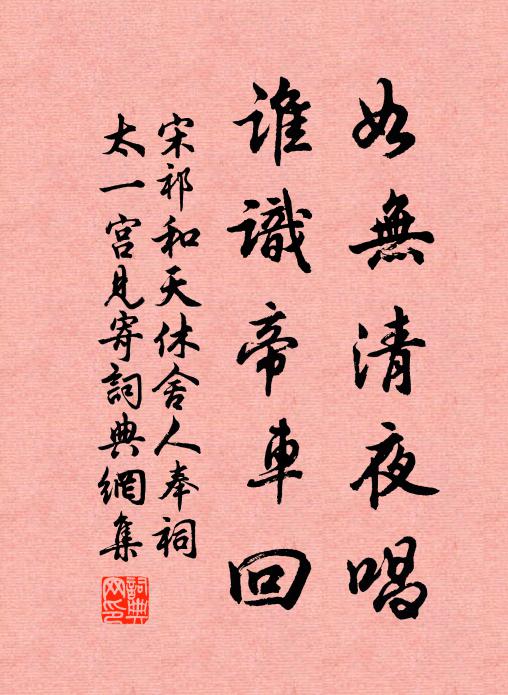 如無清夜唱
誰識帝車回
宋祁和天休舍人奉祠
太一宮見寄詞典網集
詞典網印